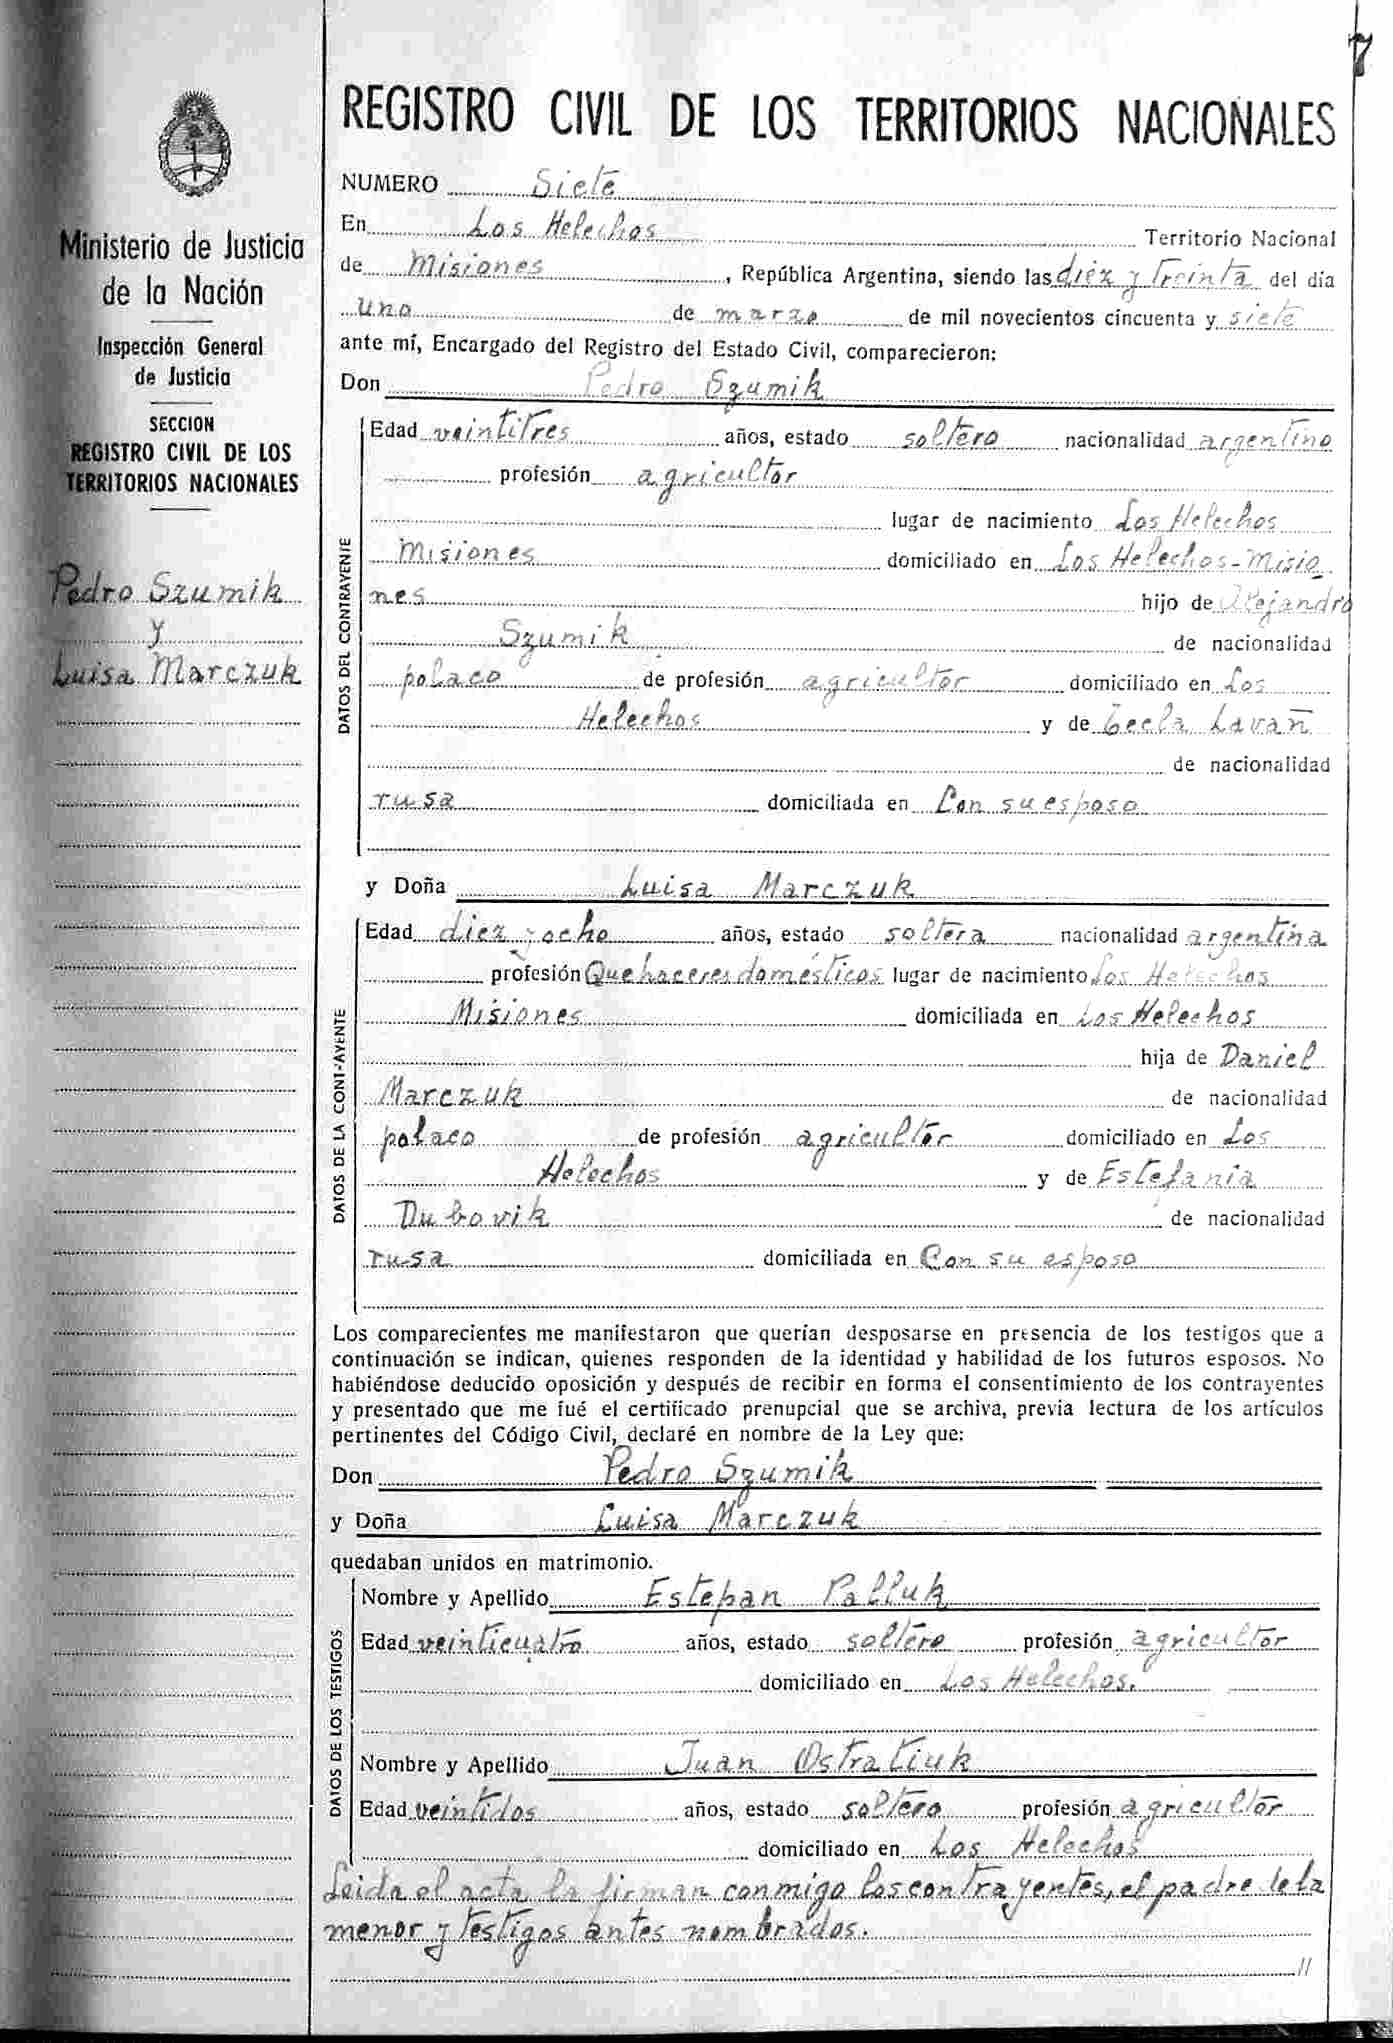 7
REGISTRO CIVIL DE LOS TERRITORIOS NACIONALES
Ministerio de Justicia
de la Nación
Inspección General
de Justicia
SECCION
REGISTRO CIVIL DE LOS
TERRITORIOS NACIONALES
Pedro Szumik
y
Luisa Marczuk
NUMERO Siete
En Los Helechos Territorio Nacional
de Misiones, República Argentina, siendo las diez y treinta del día
uno de marzo de mil novecientos cincuenta y siete
ante mí, Encargado del Registro del Estado Civil, comparecieron:
Don Pedro Szumik
DATOS DEL CONTRAYENTE
Edad veintitres años, estado soltero nacionalidad argentino
profesión agricultor
lugar de nacimiento Los Helechos
Misiones domiciliado en Los Helechos-Misio
nes hijo de Alejandro
Szumik de nacionalidad
polaco de profesión agricultor domiciliado en Los
Helechos y de Tecla Lavañ
de nacionalidad
rusa domiciliada en Con su esposo
y Doña Luisa Marczuk
DATOS DE LA CONT-AYENTE
Edad diez y ocho años, estado soltera nacionalidad argentina
profesión Quehaceres domésticos lugar de nacimiento Los Helechos
Misiones domiciliada en Los Helechos
hija de Daniel
Marczuk de nacionalidad
polaco de profesión agricultor domiciliado en Los
Helechos y de Estefania
Dubovik de nacionalidad
rusa domiciliada en Con su esposo
Los comparecientes me manifestaron que querían desposarse en presencia de los testigos que a
continuación se indican, quienes responden de la identidad y habilidad de los futuros esposos. No
habiéndose deducido oposición y después de recibir en forma el consentimiento de los contrayentes
y presentado que me fué el certificado prenupcial que se archiva, previa lectura de los artículos
pertinentes del Código Civil, declaré en nombre de la Ley que:
Don Pedro Szumik
y Doña Luisa Marczuk
quedaban unidos en matrimonio.
DATOS DE LOS TESTIGOS
Nombre y Apellido Estepan Palluk
Edad veinticuatro años, estado soltero profesión agricultor
domiciliado en Los Helechos.
Nombre y Apellido Juan Ostratiuk
Edad veintidos años, estado soltero profesión agricultor
domiciliado en Los Helechos
Leida el acta la firman conmigo los contrayentes, el padre de la
menor y testigos antes nombrados.
//